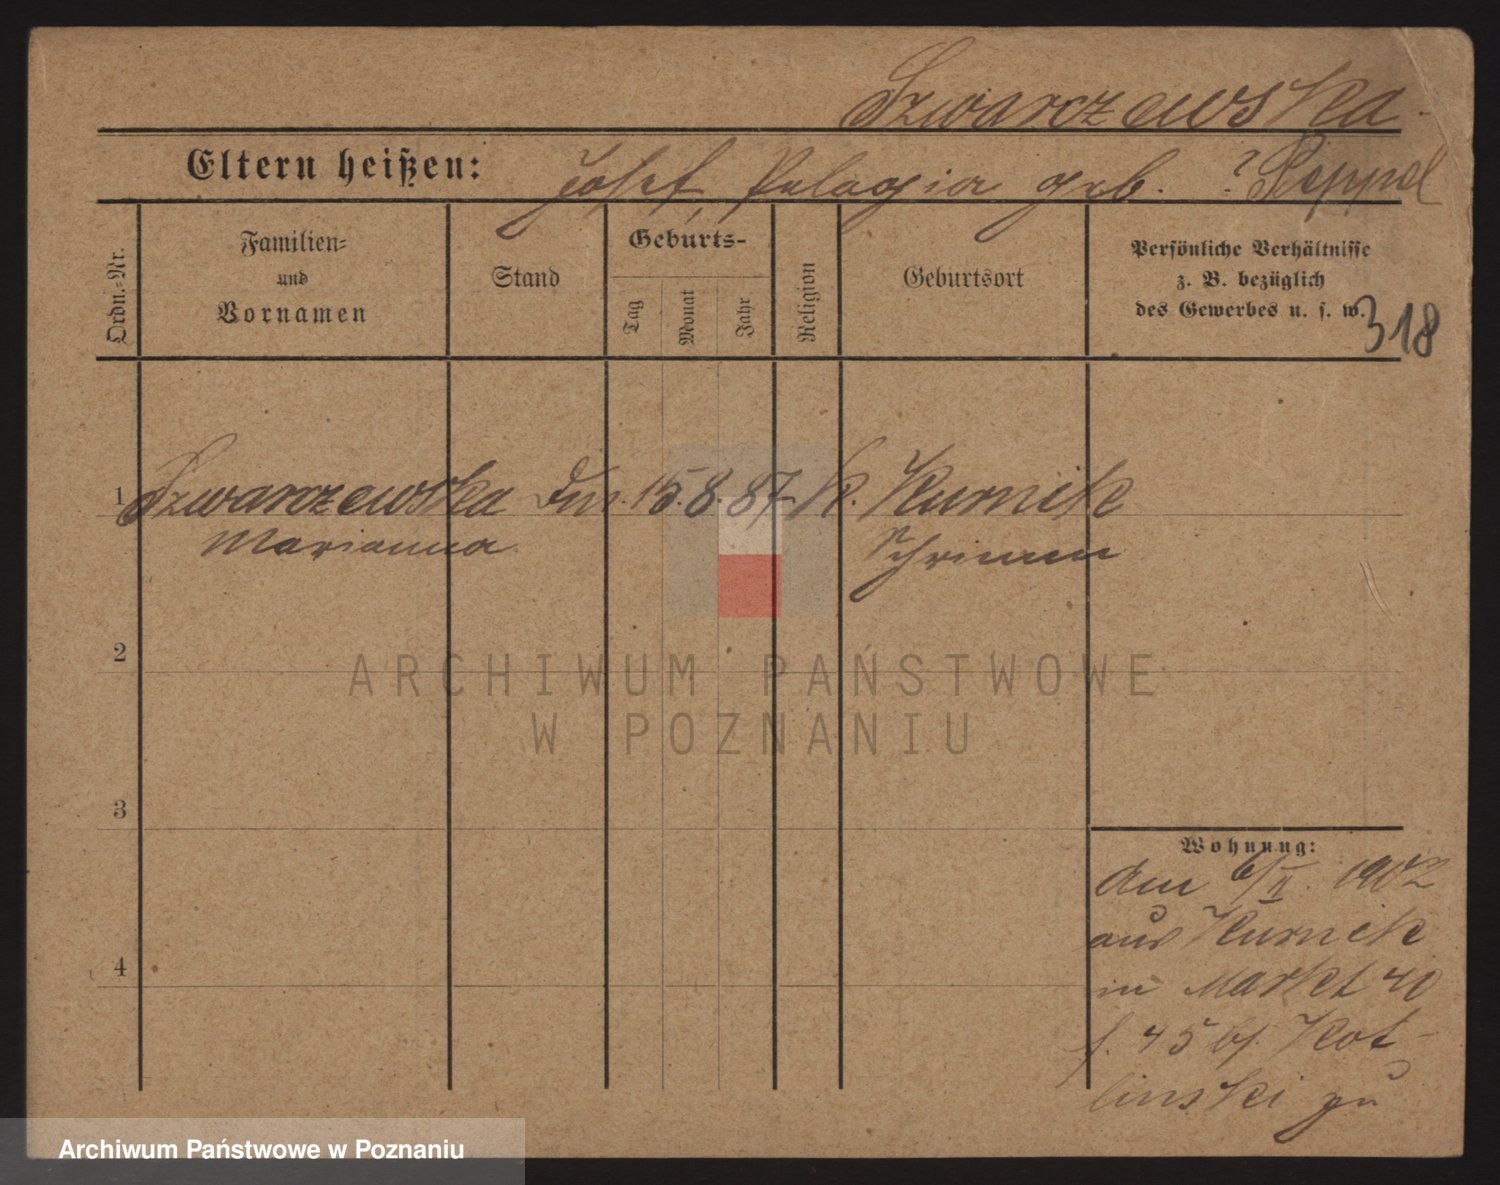 Szwarczewska
Eltern heißen: Josef, Pelagia geb. ? Peppel
Ordn.-Nr.
Familien-
und
Vornamen
Stand
Geburts-
Tag
Monat
Jahr
Religion
Geburtsort
Persönliche Verhältnisse
z. B. bezüglich
des Gewerbes u. s. w.
318
1 Szwarczewska Dm. 15. 8. 87 K. Kurnik
Marianna Schrimm
2
ARCHIWUM PAŃSTWOWE
W POZNANIU
3
Wohnung:
den 6/II. 1902
aus Kurnik
in Markt 40
f. 45 bj. Kot-
linski zu
4
Archiwum Państwowe w Poznaniu